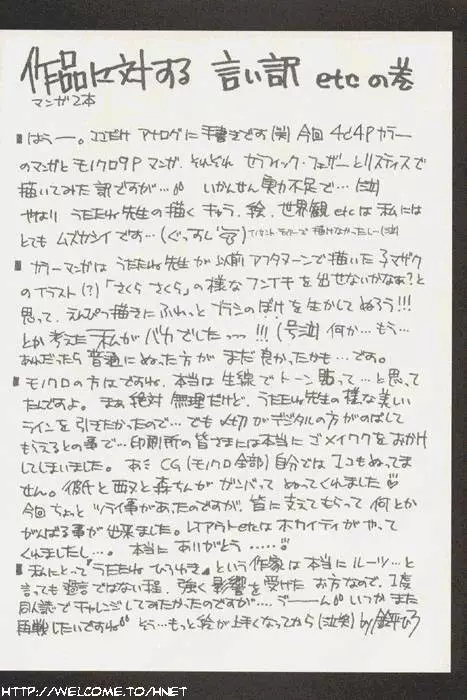 作品に対する 言い訳 etc の巻
マンガ2本
■はぅー。ココだけ アナログに手書きです(笑) 今回 4C4P カラー
のマンガと モノクロ9P マンガ、それぞれ セラフィック・フェザーとリスティスで
描いてみた訳ですが… いかんせん実力不足で…(泣)
やはり うたたね先生の描く キャラ、絵、世界観etcは 私には
とても ムズカシイです…(ぐっすし
■カラーマンガは うたたね先生が以前アフタヌーンで描いた
のイラスト(?)「さくら さくら」の様なフンイキを出せないかなぁ?と
思って、えんぴつ描きに ふわっと ブラシのぼけを生かしてぬろう!!!
とか考えた 私がバカでしたっ…!!!(号泣) 何か…もう…
あれだったら 普通にぬった方が まだ良かったかも…です。
■モノクロの方はですね、本当は生線でトーン貼って…と思って
たんですよ。まぁ絶対無理だけど、うたたね先生の様な美しい
ラインを引きたかったので…でも〆切がデジタルの方がのばして
もらえるとの事で…印刷所の皆さまには本当にゴメイワクをおかけ
してしまいました。あ、CG(モノクロ全部)自分では1コもぬってま
せん。彼氏と西又と森ちんがガンバってぬってくれました
今回ちょっとツライ事があったのですが、皆に支えてもらって何とか
がんばる事が出来ました。レイアウトetcはホカイティがやって
くれましたし…。本当にありがとう……!
■私にとって『うたたねひろゆき』という作家は本当にルーツ…と
言っても過言ではない程、強く影響を受けたお方なので、1度
同人誌でチャレンジしてみたかったのですが…うーーん いつかまた
再戦したいですね そう…もっと絵が上手くなってから(泣笑) by
HTTP://WELCOME.TO/HNET